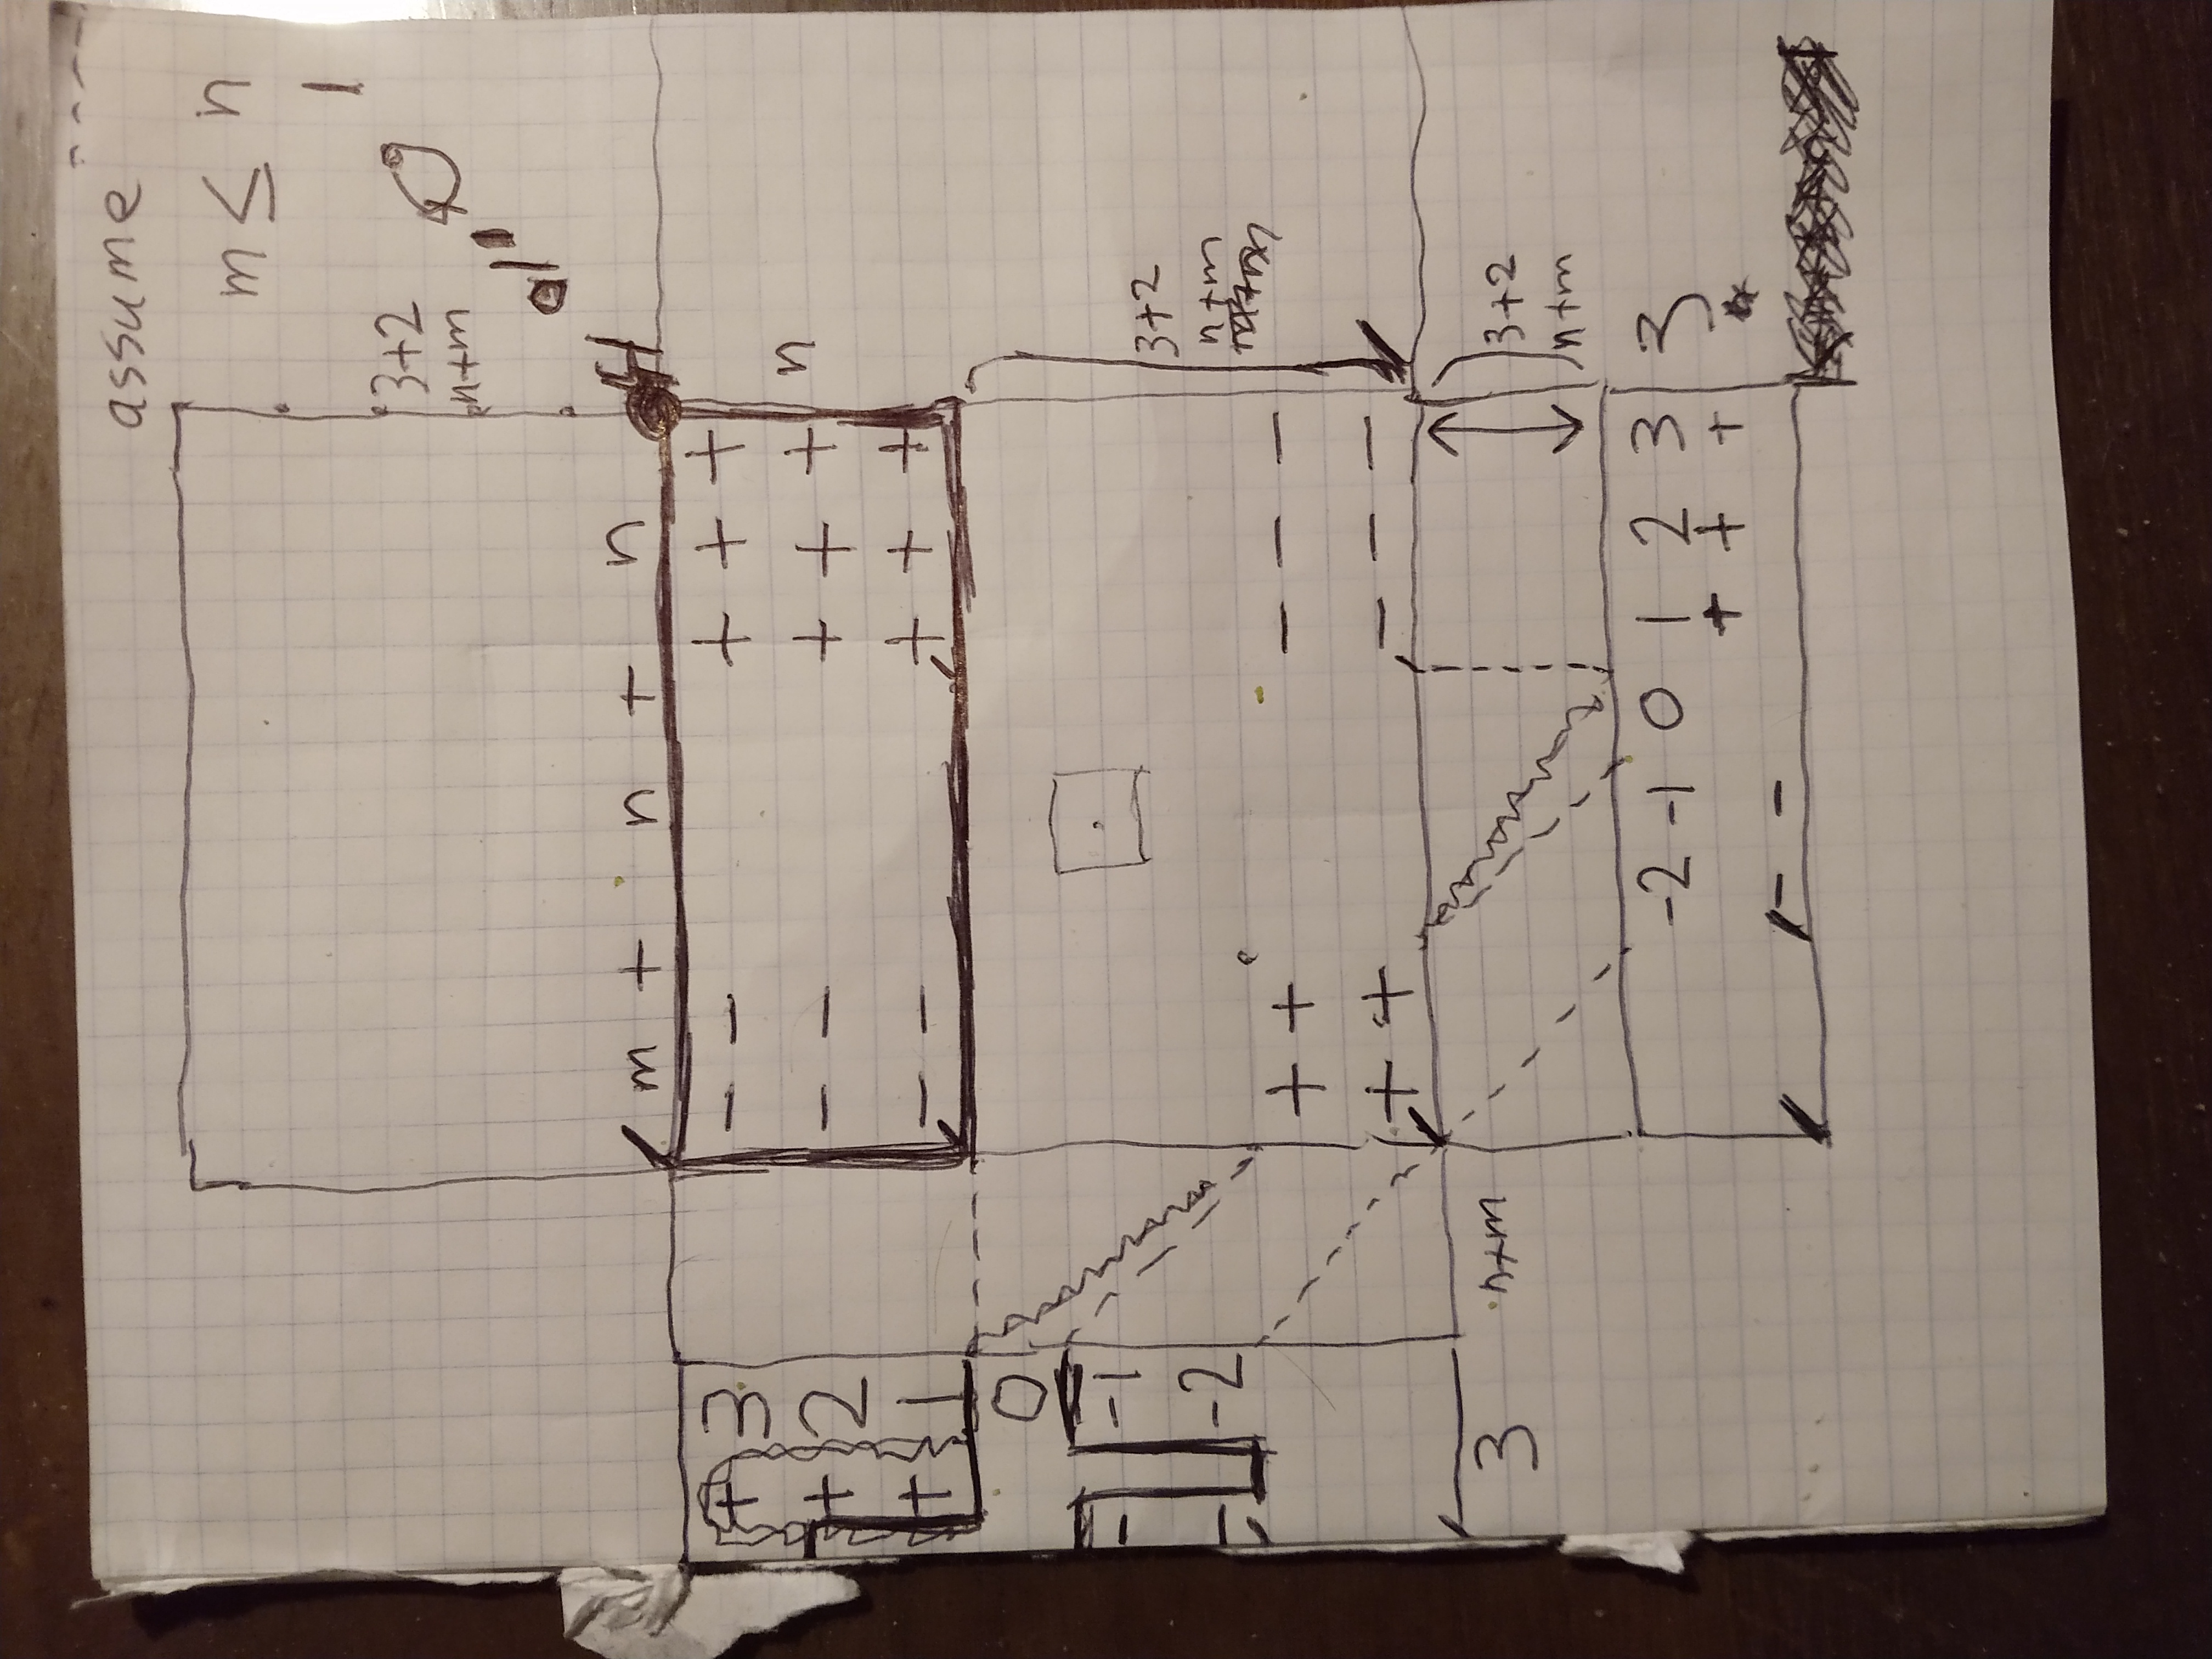 assume
m ≤ n
1
3+2
n+m
m + n + n
- - + + +
+ 3
n
+ 2
- - + + +
+ 1
- - + + +
0
- -1
3+2
n+m
- -2
+ + - - -
+ + - - -
3 n+m
3+2
n+m
-2 -1 0 1 2 3 3
+ + +
- -